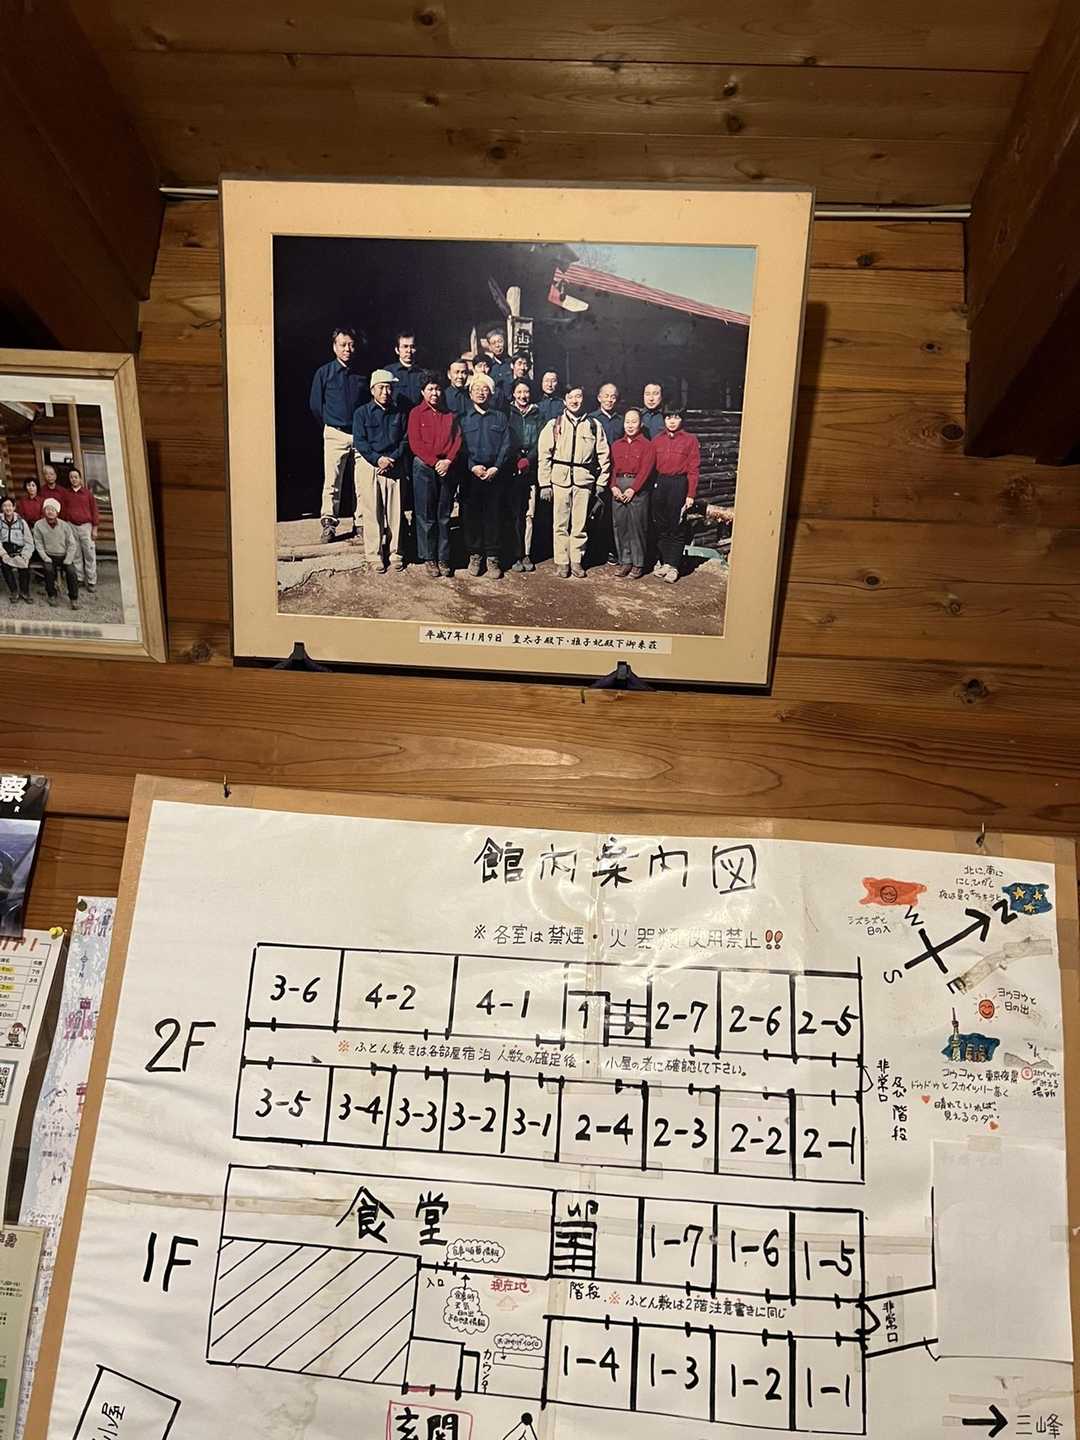 平成7年11月9日 皇太子殿下・雅子妃殿下御来荘
察
館内案内図
※各室は禁煙・火器類使用禁止!!
北に、南に
にし、ひがし
夜は星々キラキラと
シズシズと
日の入
W
N
S
E
ヨウヨウと
日の出
コウコウと東京夜景
ドゥドゥとスカイツリー高く
晴れていれば、
見えるのダ・
スカイツリー
がみえる
場所
2F
3-6
4-2
4-1
2-7
2-6
2-5
※ふとん敷きは各部屋宿泊人数の確定後・小屋の者に確認して下さい。
3-5
3-4
3-3
3-2
3-1
2-4
2-3
2-2
2-1
非常口
及び階段
1F
食堂
UP
1-7
1-6
1-5
入口
現在地
階段
※ふとん敷は2階注意書きに同じ
非常口
カウンター
1-4
1-3
1-2
1-1
玄関
小屋
三峰